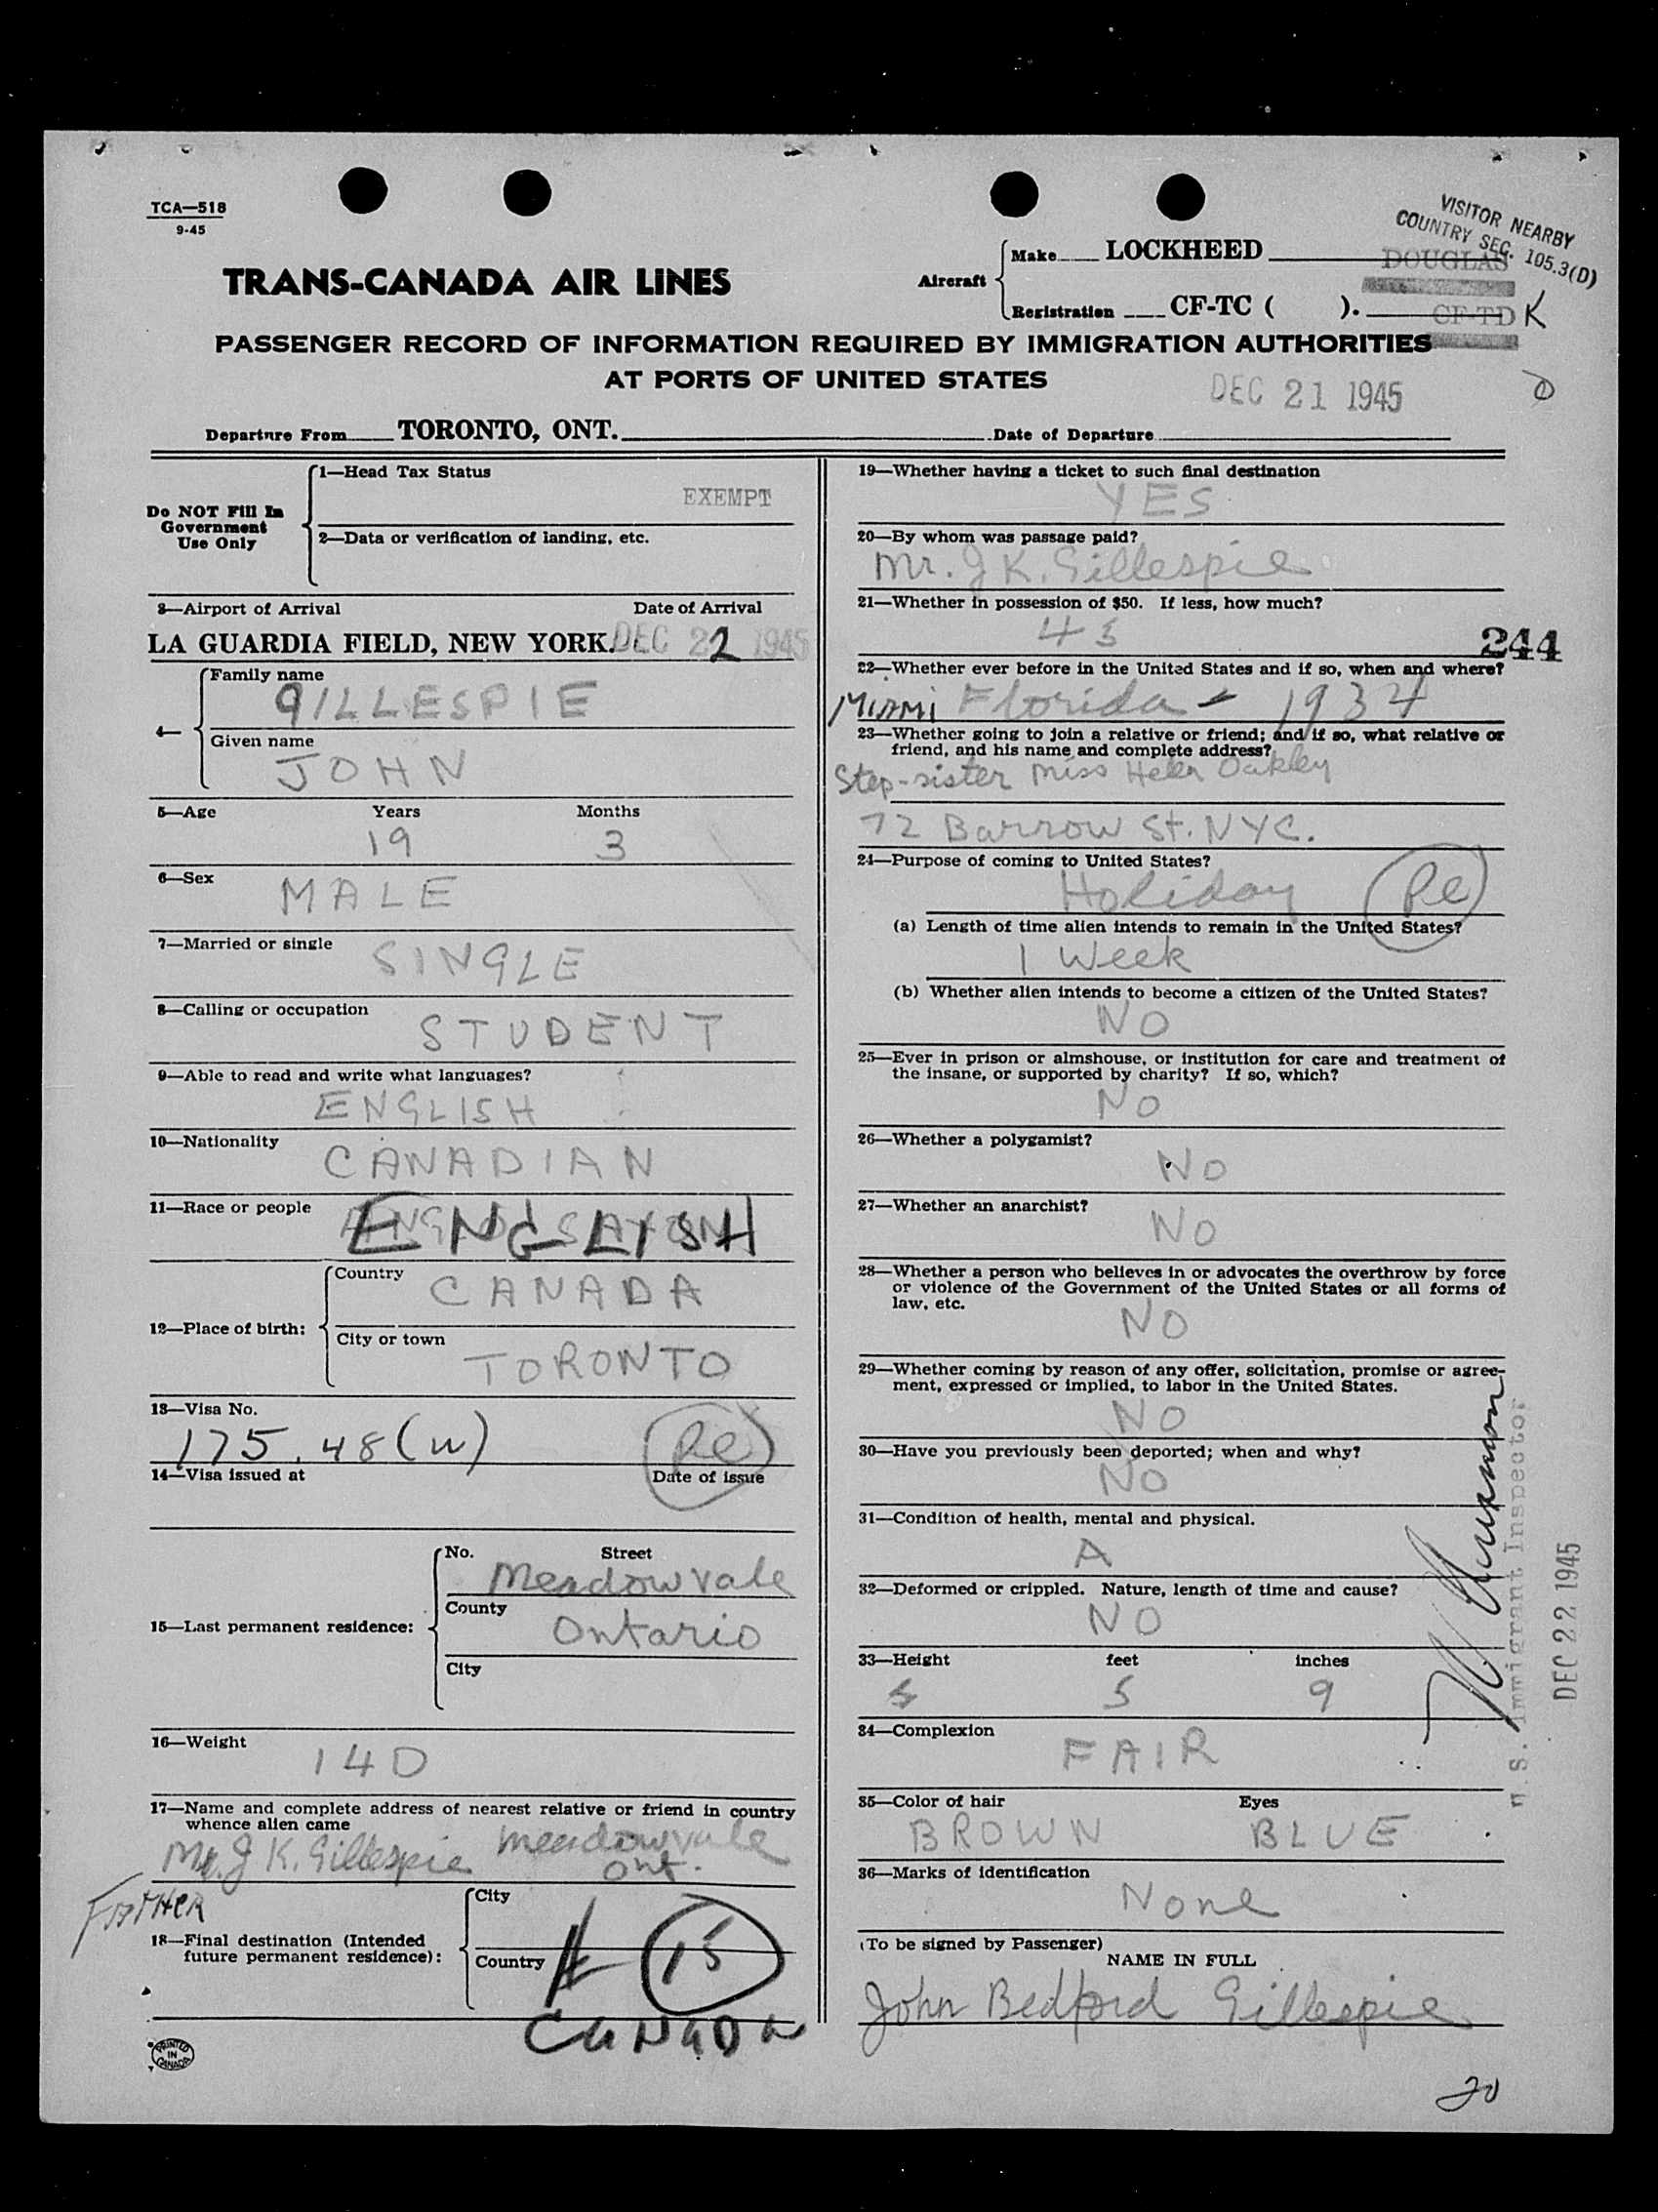 TCA—518
9-45
VISITOR NEARBY
COUNTRY SEC. 105.3(D)
TRANS-CANADA AIR LINES
Aircraft
Make LOCKHEED DOUGLAS
Registration CF-TC ( ). CF-TD K
PASSENGER RECORD OF INFORMATION REQUIRED BY IMMIGRATION AUTHORITIES
AT PORTS OF UNITED STATES
DEC 21 1945
Departure From TORONTO, ONT. Date of Departure
Do NOT Fill In
Government
Use Only
1—Head Tax Status
EXEMPT
2—Data or verification of landing, etc.
3—Airport of Arrival Date of Arrival
LA GUARDIA FIELD, NEW YORK. DEC 22 1945
4—
Family name
GILLESPIE
Given name
JOHN
5—Age Years Months
19 3
6—Sex
MALE
7—Married or single
SINGLE
8—Calling or occupation
STUDENT
9—Able to read and write what languages?
ENGLISH
10—Nationality
CANADIAN
11—Race or people
ENGLISH
12—Place of birth:
Country
CANADA
City or town
TORONTO
13—Visa No.
175.48(W)
14—Visa issued at Date of issue
15—Last permanent residence:
No. Street
Meadowvale
County
Ontario
City
16—Weight
140
17—Name and complete address of nearest relative or friend in country
whence alien came
Mr. J K. Gillespie Meadowvale
Ont.
FATHER
18—Final destination (Intended
future permanent residence):
City
Country
15
CANADA
PRINTED
IN
CANADA
19—Whether having a ticket to such final destination
YES
20—By whom was passage paid?
Mr. J K. Gillespie
21—Whether in possession of $50. If less, how much?
45
244
22—Whether ever before in the United States and if so, when and where?
MIAMI Florida - 1934
23—Whether going to join a relative or friend; and if so, what relative or
friend, and his name and complete address?
Step-sister Miss Helen Oakley
72 Barrow St. NYC.
24—Purpose of coming to United States?
Holiday
(a) Length of time alien intends to remain in the United States?
1 Week
(b) Whether alien intends to become a citizen of the United States?
NO
25—Ever in prison or almshouse, or institution for care and treatment of
the insane, or supported by charity? If so, which?
NO
26—Whether a polygamist?
NO
27—Whether an anarchist?
NO
28—Whether a person who believes in or advocates the overthrow by force
or violence of the Government of the United States or all forms of
law, etc.
NO
29—Whether coming by reason of any offer, solicitation, promise or agree-
ment, expressed or implied, to labor in the United States.
NO
30—Have you previously been deported; when and why?
NO
31—Condition of health, mental and physical.
A
32—Deformed or crippled. Nature, length of time and cause?
NO
33—Height feet inches
5 5 9
34—Complexion
FAIR
35—Color of hair Eyes
BROWN BLUE
36—Marks of identification
None
(To be signed by Passenger)
NAME IN FULL
John Bedford Gillespie
U.S. Immigrant Inspector
DEC 22 1945
20